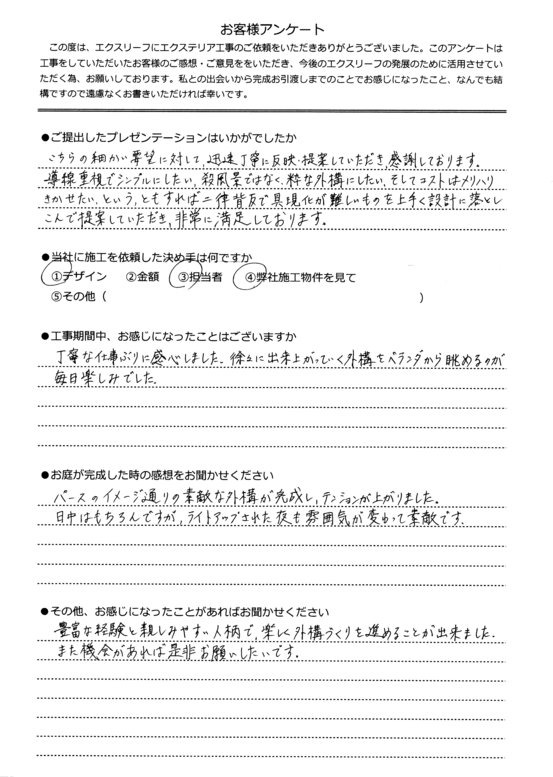 お客様アンケート
この度は、エクスリーフにエクステリア工事のご依頼をいただきありがとうございました。このアンケートは
工事をしていただいたお客様のご感想・ご意見ををいただき、今後のエクスリーフの発展のために活用させてい
ただく為、お願いしております。私との出会いから完成お引渡しまでのことでお感じになったこと、なんでも結
構ですので遠慮なくお書きいただければ幸いです。
●ご提出したプレゼンテーションはいかがでしたか
こちらの細かい要望に対して、迅速丁寧に反映・提案していただき、感謝しております。
導線重視でシンプルにしたい、殺風景ではなく、粋な外構にしたい、そしてコストはメリハリ
きかせたい、という、ともすれば二律背反で具現化が難しいものを上手く設計に落とし
こんで提案していただき、非常に満足しております。
●当社に施工を依頼した決め手は何ですか
①デザイン ②金額 ③担当者 ④弊社施工物件を見て
⑤その他（ ）
●工事期間中、お感じになったことはございますか
丁寧な仕事ぶりに感心しました。徐々に出来上がっていく外構をベランダから眺めるのが
毎日楽しみでした。
●お庭が完成した時の感想をお聞かせください
パースのイメージ通りの素敵な外構が完成し、テンションが上がりました。
日中はもちろんですが、ライトアップされた夜も雰囲気が変わって素敵です。
●その他、お感じになったことがあればお聞かせください
豊富な経験と親しみやすい人柄で、楽しく外構づくりを進めることが出来ました。
また機会があれば是非お願いしたいです。